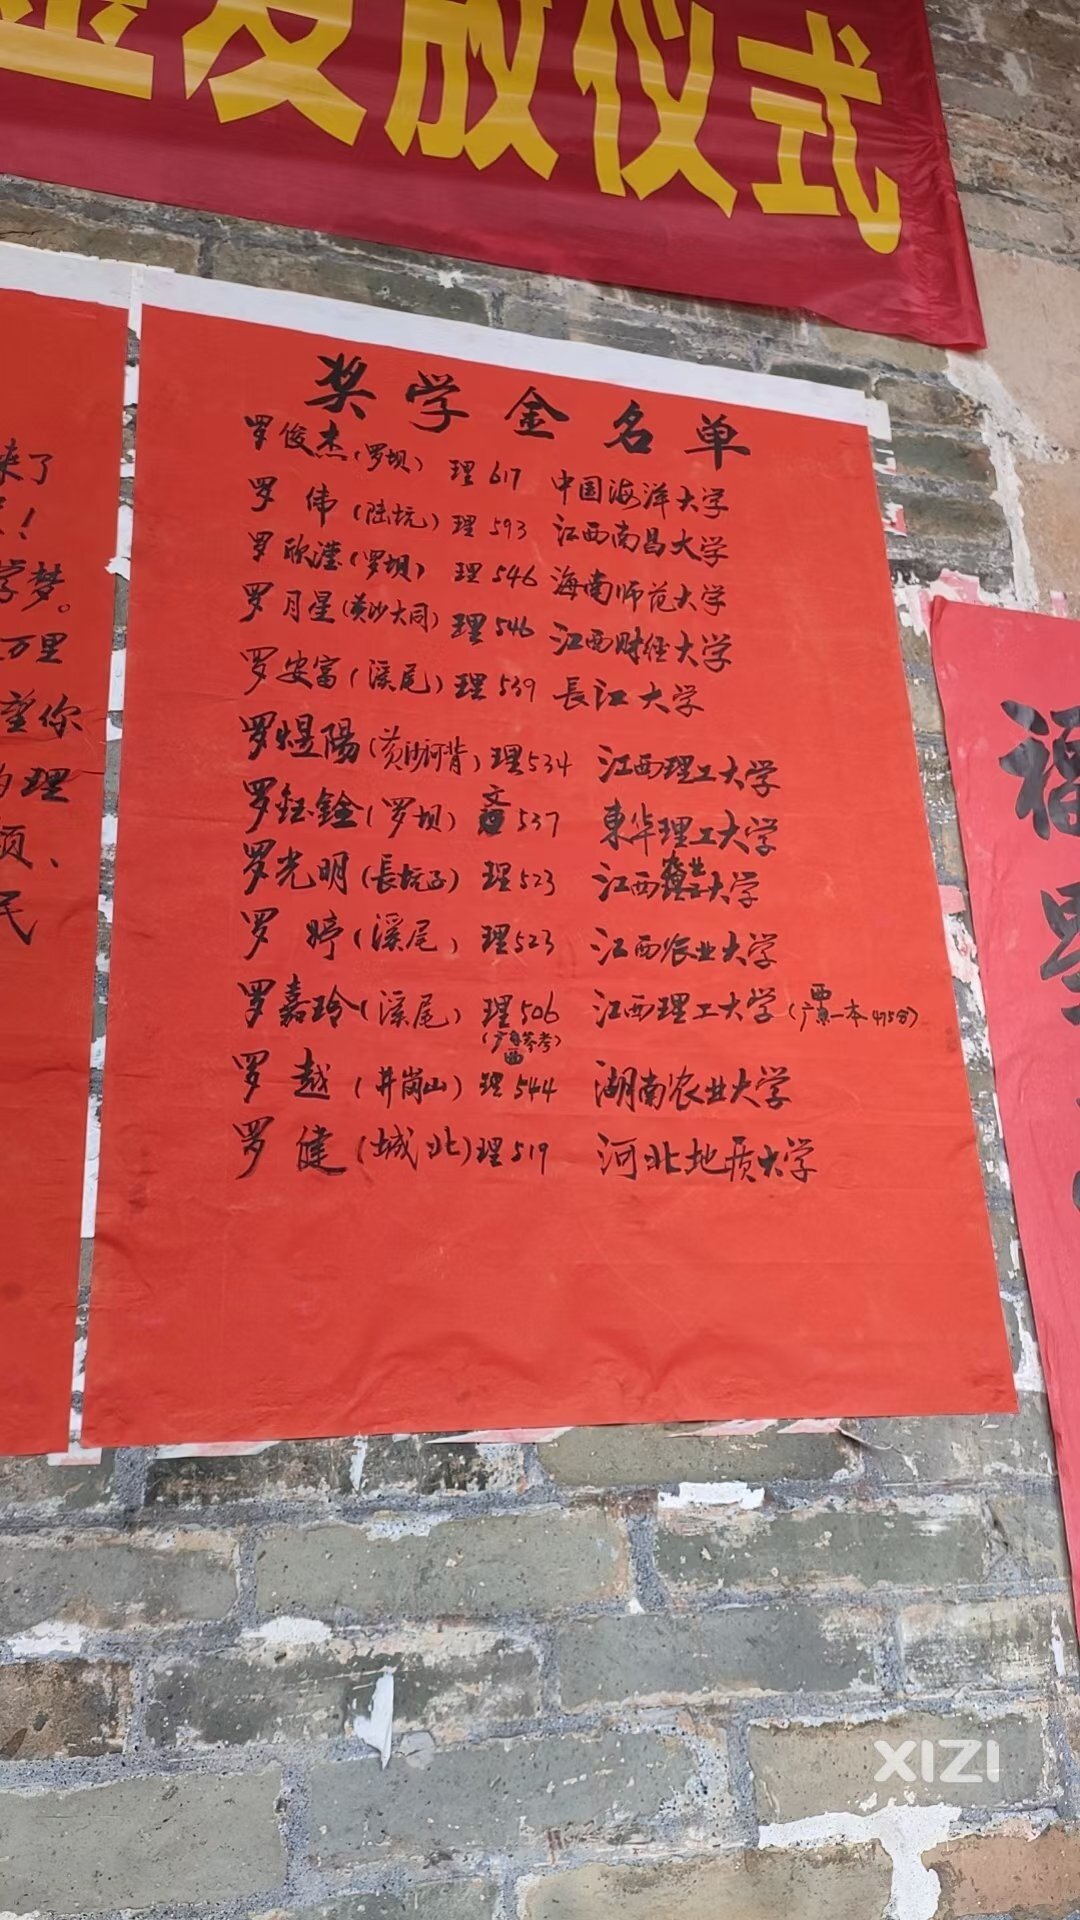 金发放仪式
来了
!
学梦。
万里
望你
的理
须、
民
奖学金名单
罗俊杰(罗坝) 理617 中国海洋大学
罗伟(陆坑)理593 江西南昌大学
罗欣滢(罗坝) 理546 海南师范大学
罗月星(黄沙大同)理546 江西财经大学
罗安富(溪尾)理539 長江大学
罗煜陽(黄沙河背)理534 江西理工大学
罗钰鍂(罗坝) 文537 東华理工大学
罗光明(長坑子) 理523 江西农业大学
罗婷(溪尾) 理523 江西农业大学
罗嘉玲(溪尾) 理506 江西理工大学(广西一本475分)
(广西参考)
罗越(井岗山)理544 湖南农业大学
罗健(城北)理519 河北地质大学
福星
XIZI